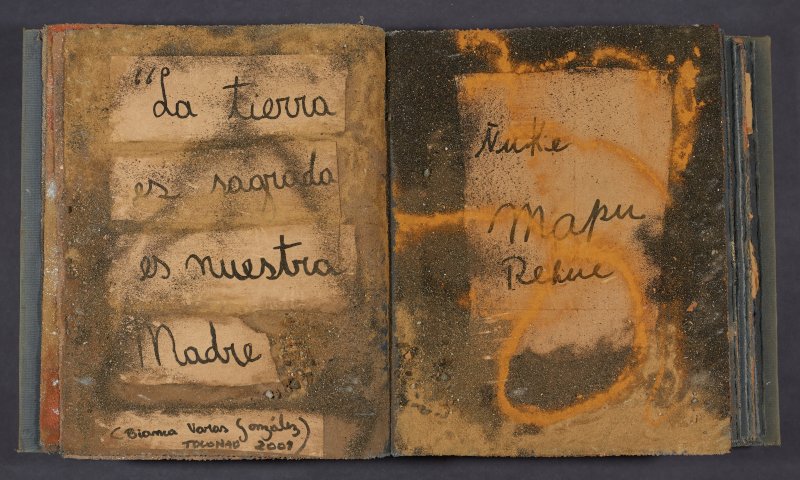 "La tierra
es sagrada
es nuestra
Madre
(Bianca Varas González)
TOCONAO 2009
Ñuke
Mapu
Rehue